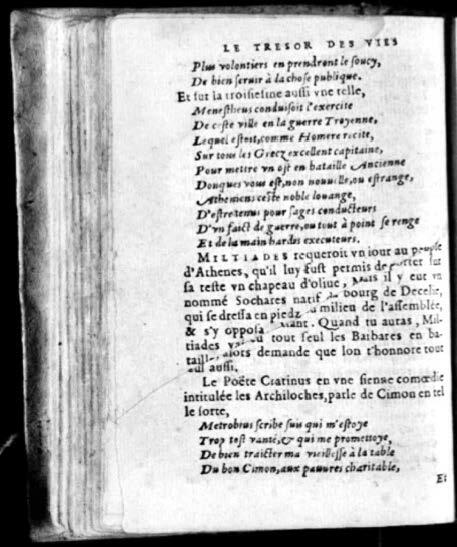 LE TRESOR DES VIES
Plus volontiers en prendront le soucy,
De bien seruir à la chose publique.
Et sur la troisiesme aussi vne telle,
Menestheus conduisoit l'exercite
De ceste ville en la guerre Troyenne,
Lequel estoit, comme Homere recite,
Sur tous les Grecz excellent capitaine,
Pour mettre vn ost en bataille Ancienne
Donques vous est, non nouuelle, ou estrange,
Atheniens ceste noble louange,
D'estre tenus pour sages conducteurs
D'vn faict de guerre, ou tout à point se renge
Et de la main hardis executeurs.
MILTIADES requeroit vn iour au peuple
d'Athenes, qu'il luy fust permis de porter sur
sa teste vn chapeau d'oliue, mais il y eut vn
nommé Sochares natif du bourg de Decelie,
qui se dressa en piedz au milieu de l'assemblée,
& s'y opposa disant. Quand tu auras, Mil-
tiades tout seul les Barbares en ba-
taille, alors demande que lon t'honnore tout
seul aussi.
Le Poëte Cratinus en vne sienne comœdie
intitulée les Archiloches, parle de Cimon en tel
le sorte,
Metrobius scribe suis qui m'estoye
Trop tost vanté, & qui me promettoye,
De bien traicter ma vieillesse à la table
Du bon Cimon, aux pauures charitable,
Et